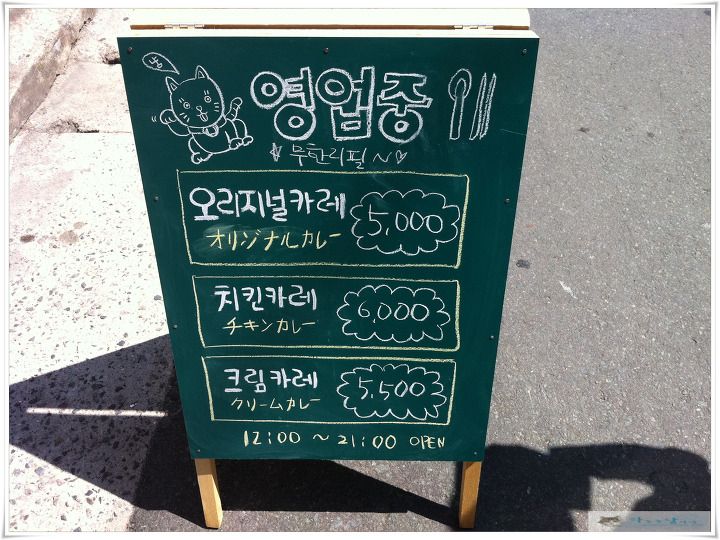 영업중
무한리필~
오리지널카레 5,000
オリジナルカレー
치킨카레 6,000
チキンカレー
크림카레 5,500
クリームカレー
12:00 ~ 21:00 OPEN